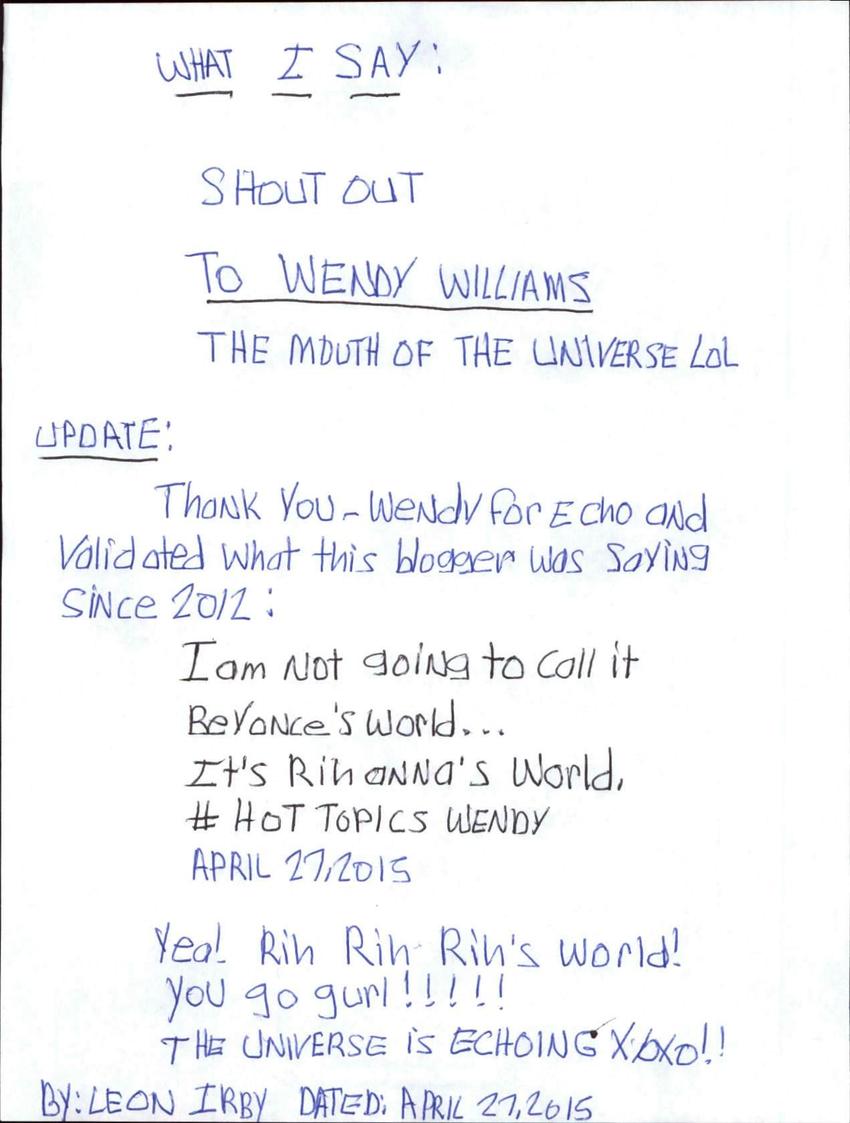 WHAT I SAY:
SHOUT OUT
TO WENDY WILLIAMS
THE MOUTH OF THE UNIVERSE LOL
UPDATE:
Thank You - Wendy for Echo and
Validated what this blogger was saying
since 2012:
I am Not going to call it
Beyonce's world...
It's Rihanna's World,
# HOT TOPICS WENDY
APRIL 27, 2015
Yea! Rih Rih Rih's world!
you go gurl!!!!!
THE UNIVERSE is ECHOING XOXO!!
BY: LEON IRBY DATED: APRIL 27, 2015